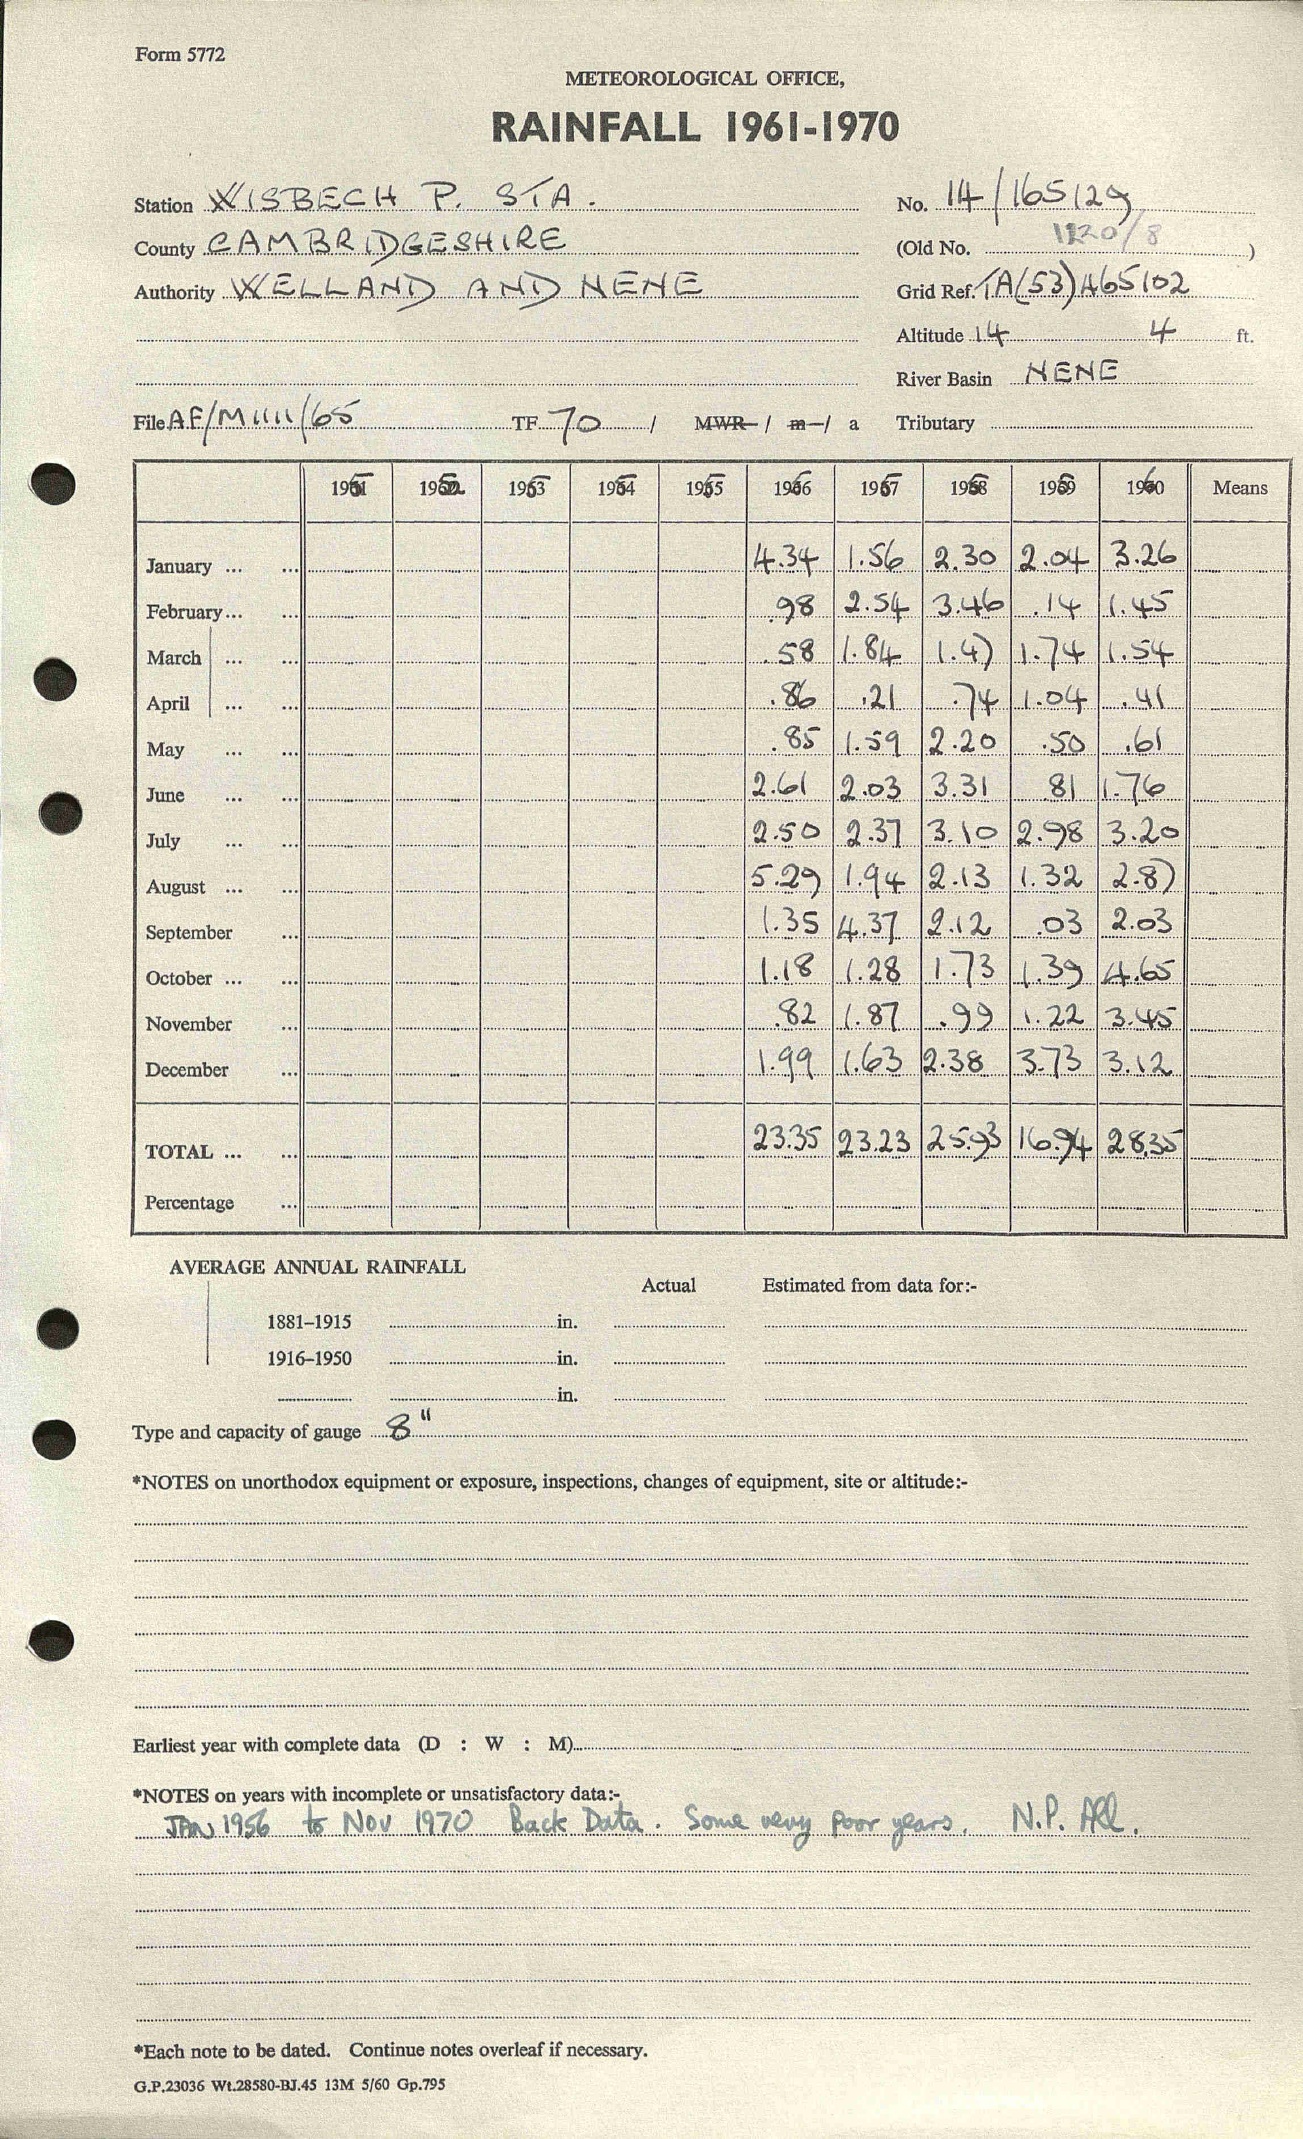 Form 5772
METEOROLOGICAL OFFICE,
RAINFALL 1961-1970
Station WISBECH P. STA. No. 14/165129
County CAMBRIDGESHIRE (Old No. 1220/8 )
Authority WELLAND AND NENE Grid Ref. TA(53)465102
Altitude 14 4 ft.
River Basin NENE
File AF/M1111/65 TF 70 / MWR / m / a Tributary
1951 1952 1953 1954 1955 1956 1957 1958 1959 1960 Means
January ... ... 4.34 1.56 2.30 2.04 3.26
February ... ... .98 2.54 3.46 .14 1.45
March ... ... .58 1.84 1.47 1.74 1.54
April ... ... .86 .21 .74 1.04 .41
May ... ... .85 1.59 2.20 .50 .61
June ... ... 2.61 2.03 3.31 .81 1.76
July ... ... 2.50 2.37 3.10 2.98 3.20
August ... ... 5.29 1.94 2.13 1.32 2.87
September ... 1.35 4.37 2.12 .03 2.03
October ... ... 1.18 1.28 1.73 1.39 4.65
November ... .82 1.87 .99 1.22 3.45
December ... 1.99 1.63 2.38 3.73 3.12
TOTAL ... ... 23.35 23.23 25.93 16.94 28.35
Percentage ...
AVERAGE ANNUAL RAINFALL
Actual Estimated from data for:-
1881–1915 in.
1916–1950 in.
in.
Type and capacity of gauge 8"
*NOTES on unorthodox equipment or exposure, inspections, changes of equipment, site or altitude:-
Earliest year with complete data (D : W : M)
*NOTES on years with incomplete or unsatisfactory data:-
JAN 1956 to Nov 1970 Back Data. Some very poor years. N.P. All.
*Each note to be dated. Continue notes overleaf if necessary.
G.P.23036 Wt.28580-BJ.45 13M 5/60 Gp.795